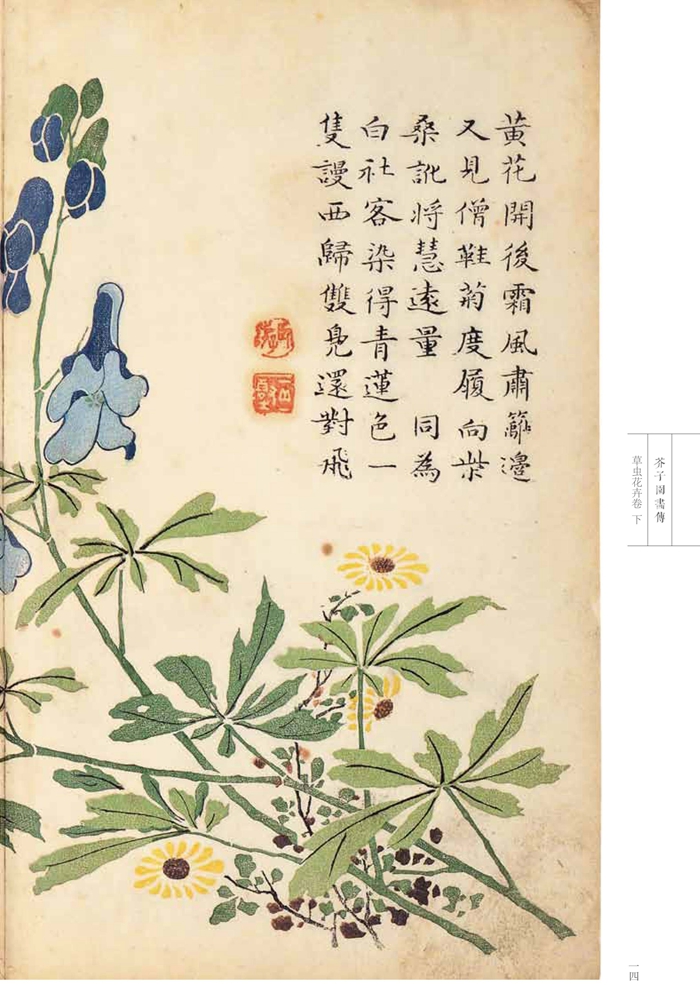 黄花開後霜風肅籬邊
又見僧鞋菊度履向柴
桑訛將慧遠量 同為
白社客染得青蓮色一
隻謾西歸雙鳧還對飛
芥子園畫傳
草虫花卉卷 下
一四